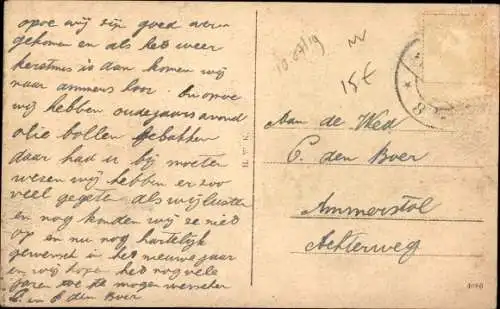 opoe wij zijn goed over
gekomen en als het weer
kerstmis is dan komen wij
naar ammers hoor. Bij opoe
wij hebben oudejaarsavond
olie bollen gebakken
daar had u bij moeten
wezen wij hebben er zoo
veel gegeten als wij lusten
en nog konden wij ze niet
op en nu nog hartelijk
gewenst in het nieuwe jaar
en wij hopen het nog vele
jaren te mogen wenschen
C. en C den Boer
10-07/19
15€
Aan de Wed
C. den Boer
Ammerstol
Achterweg
8
4080